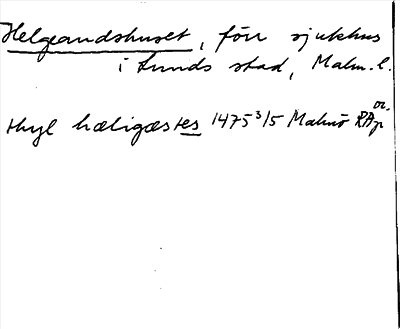 Helgeandshuset, förr sjukhus
i Lunds stad, Malm. l.
thyl hæligæstes 1475 3/5 Malmö RAp
or.